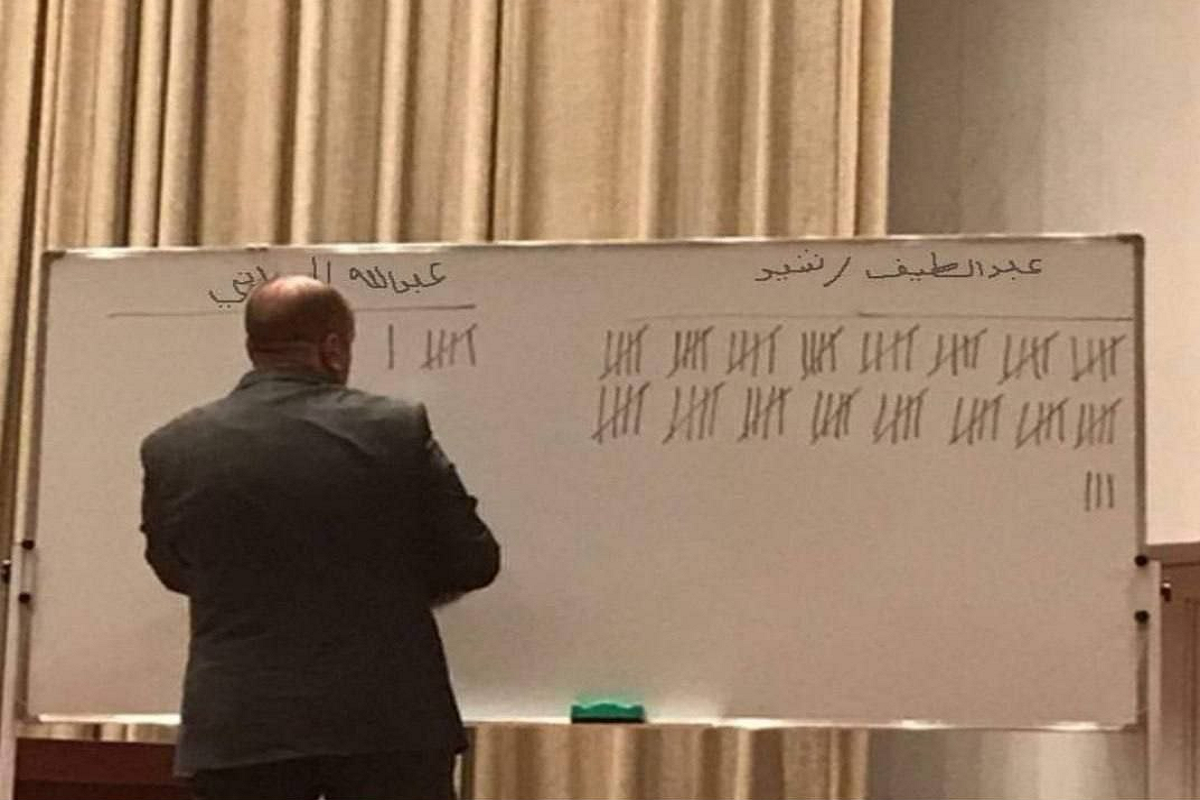 عبد الطيف رشيد
عبدالله